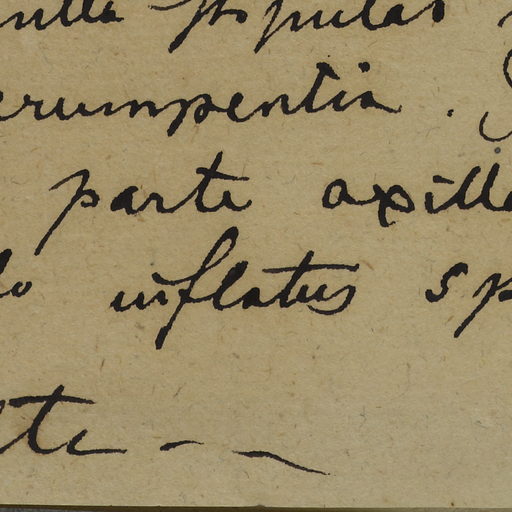 stipulas
erumpentia.
parte axill
inflatus sp
te